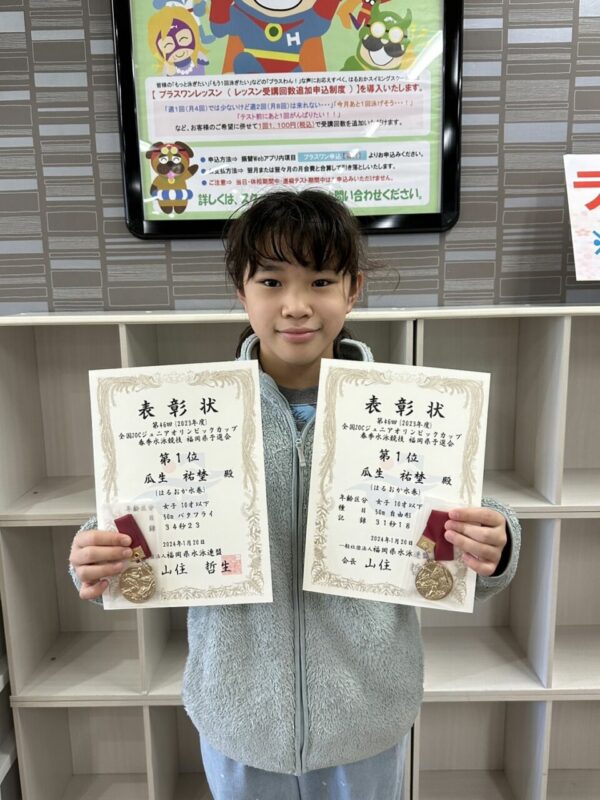 OH
皆様の「もっと泳ぎたい」「もう1回泳ぎたい」などの「プラスわん！」な声にお応えすべく、はるおかスイミングスクール
【 プラスワンレッスン （ レッスン受講回数追加申込制度 ）】を導入いたします。
「週1回(月4回)では少ないけど週2回(月8回)は来れない・・・」「今月あと1回泳げそう・・・！」
「テスト前にあと1回がんばりたい！！」
など、お客様のご希望に併せて1回1,100円(税込)で受講回数を追加いただけます。
● 申込方法⇒ 振替Webアプリ内項目 プラスワン申込 よりお申込みください。
支払方法⇒ 翌月または翌々月の月会費と合算して引き落としいたします。
● ご注意⇒
詳しくは、 問い合わせください。
表彰状
第46回(2023年度)
全国JOCジュニアオリンピックカップ
春季水泳競技 福岡県予選会
第1位
瓜生 祐埜 殿
(はるおか水巻)
年齢区分 女子 10才以下
50m バタフライ
34秒23
2024年1月20日
福岡県水泳連盟
山住 哲生
表彰状
第46回(2023年度)
全国JOCジュニアオリンピックカップ
春季水泳競技 福岡県予選会
第1位
瓜生 祐埜 殿
(はるおか水巻)
年齢区分 女子 10才以下
種目 50m 自由形
記録 31秒18
2024年1月20日
一般社団法人福岡県水泳連盟
会長 山住